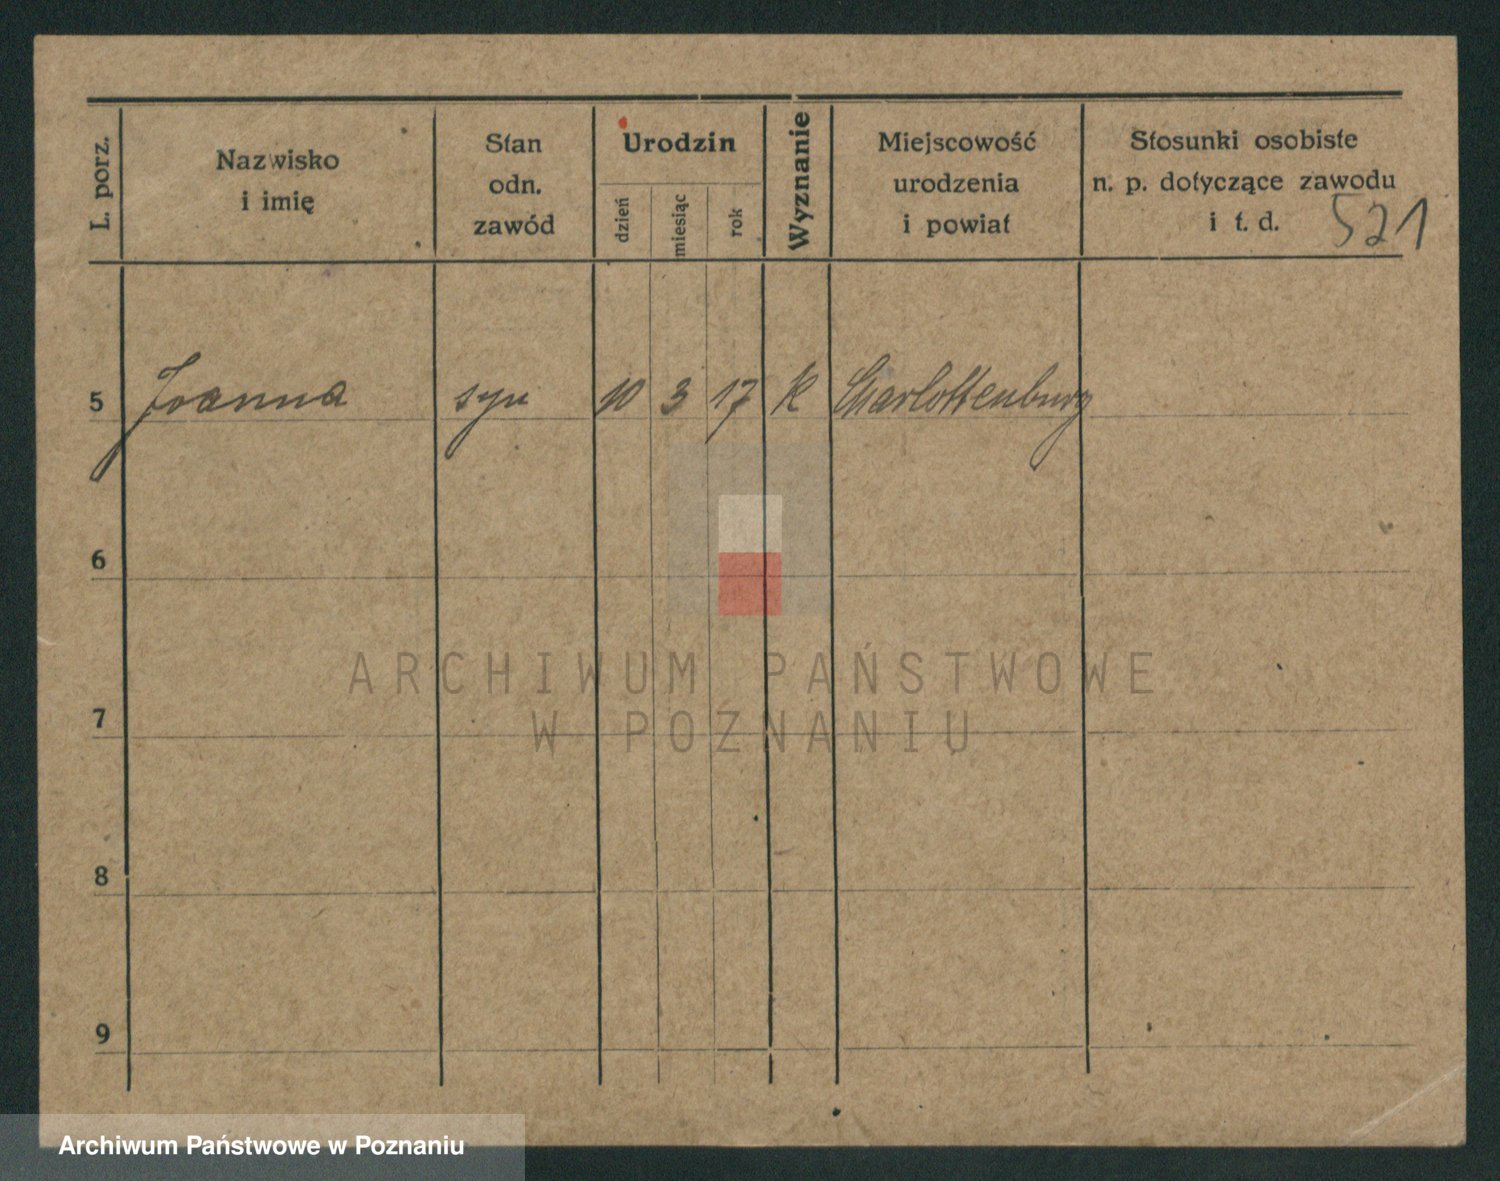 L. porz.
Nazwisko
i imię
Stan
odn.
zawód
Urodzin
dzień
miesiąc
rok
Wyznanie
Miejscowość
urodzenia
i powiat
Stosunki osobiste
n. p. dotyczące zawodu
i t. d.
521
5 Joanna syn 10 3 17 k Charlottenburg
6
7
8
9
ARCHIWUM PAŃSTWOWE
W POZNANIU
Archiwum Państwowe w Poznaniu